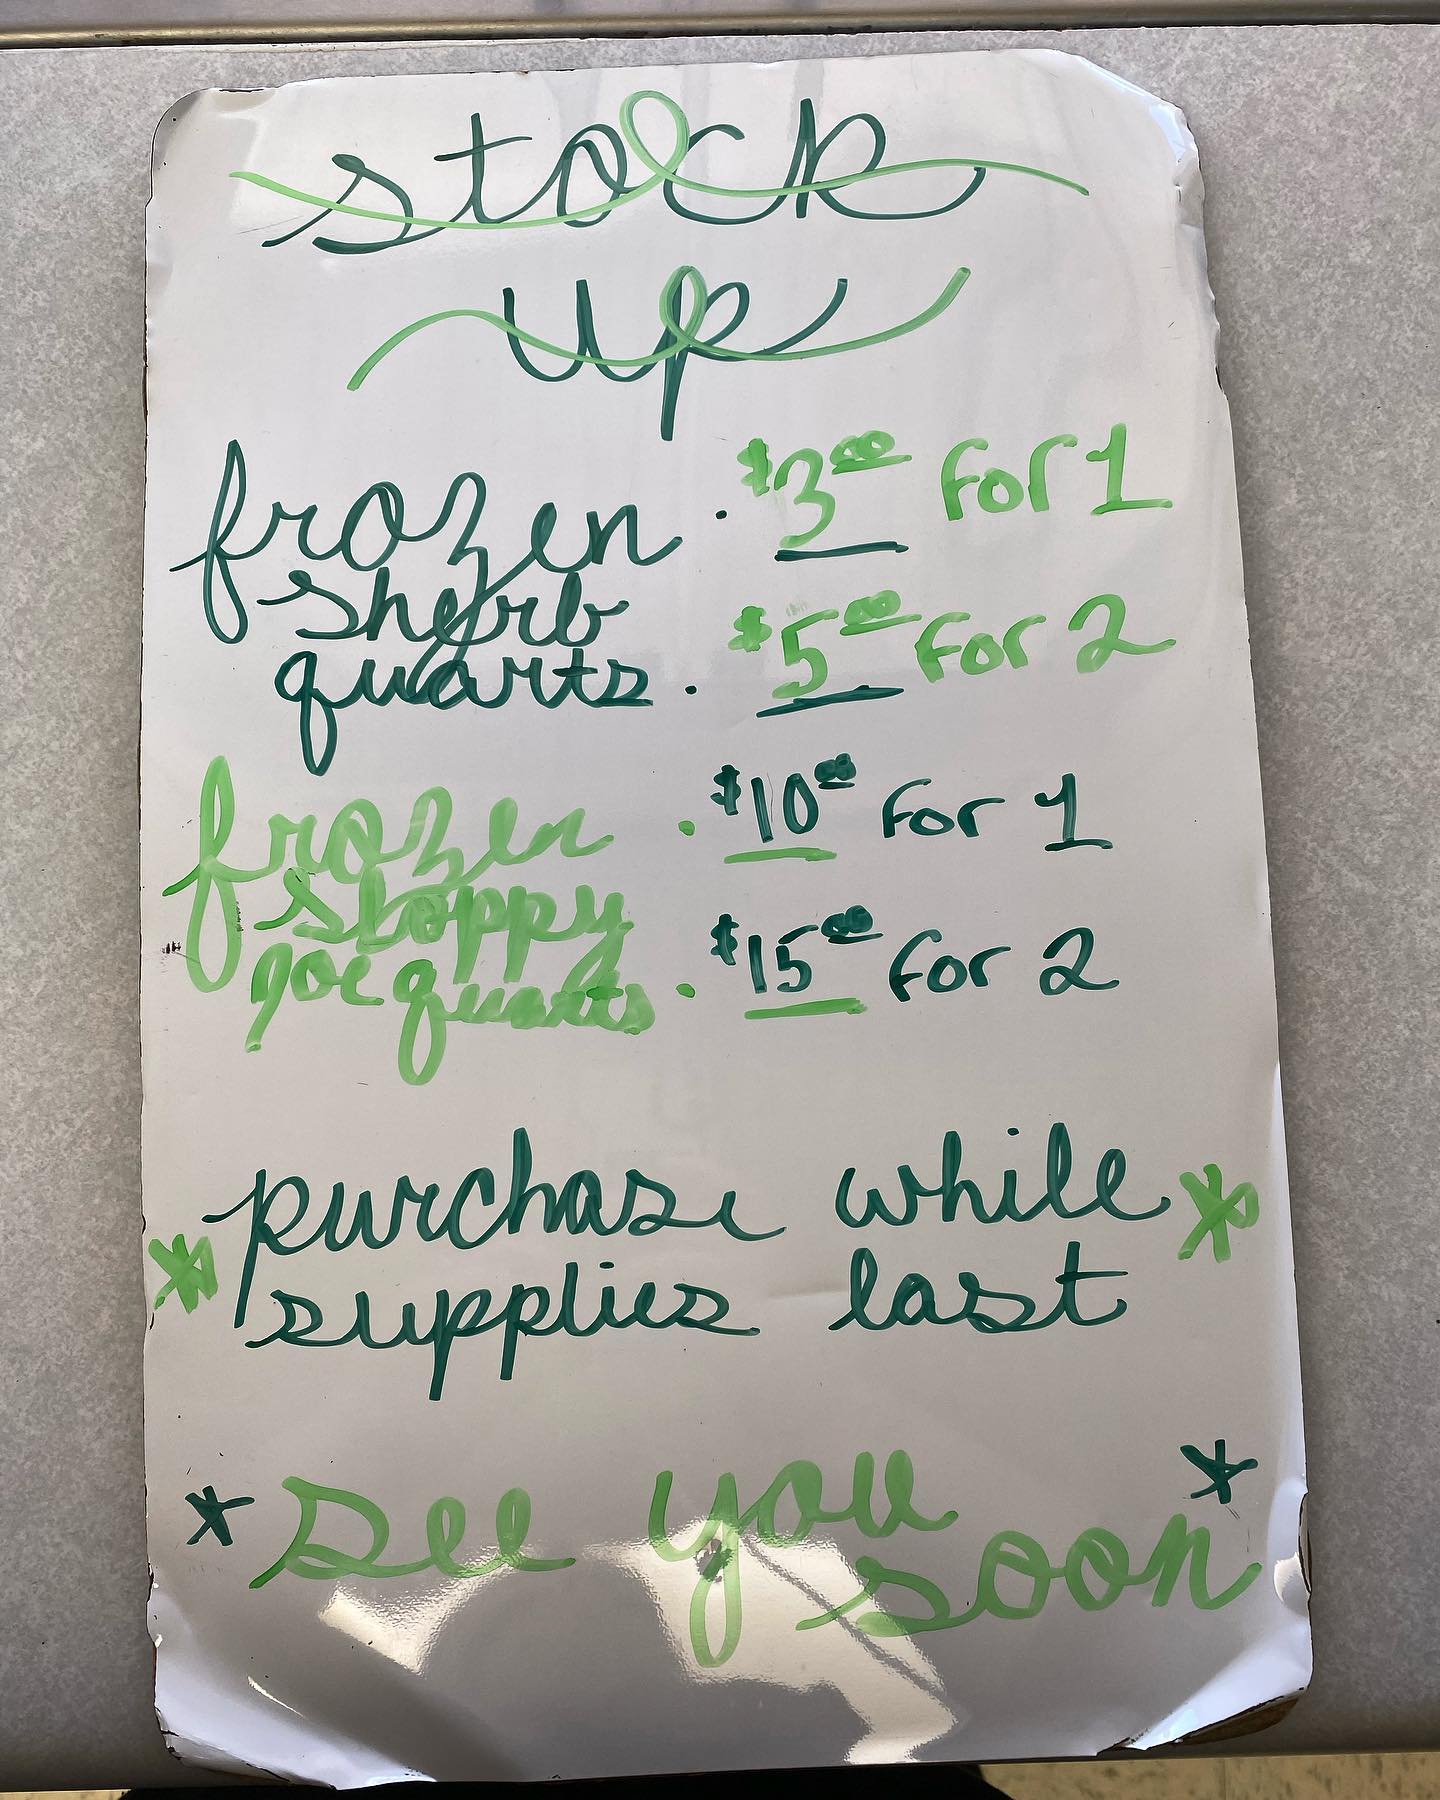 stock
up
frozen · $3.00 for 1
sherb
quarts · $5.00 for 2
frozen · $10.00 for 1
sloppy
joe quarts · $15.00 for 2
* purchase while *
supplies last
* see you soon *